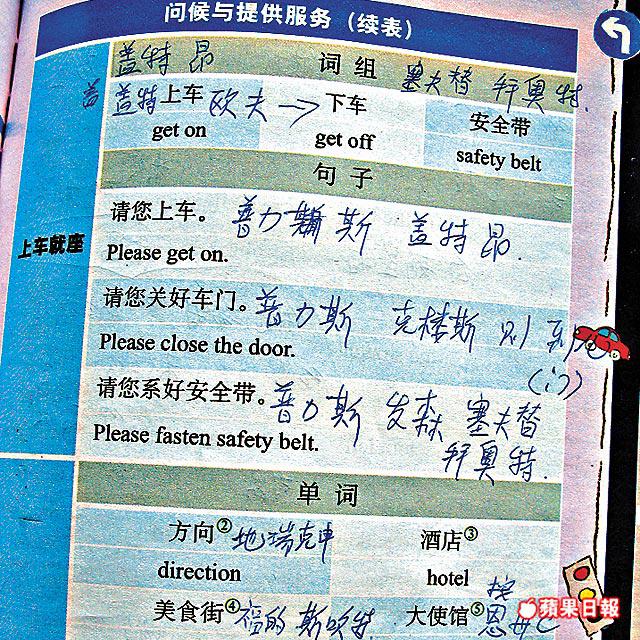 问候与提供服务（续表）
盖特 昂
词组
塞夫替
盖特上车 欧夫 → 下车
安全带
get on
get off
safety belt
句子
请您上车。 普力斯 盖特 昂.
Please get on.
上车就座
请您关好车门。 普力斯 克楼斯
Please close the door.
(门)
请您系好安全带。 普力斯 发森 塞夫替
Please fasten safety belt.
单词
方向② 地瑞克申
酒店③
direction
hotel
美食街④
大使馆⑤
蘋果日報